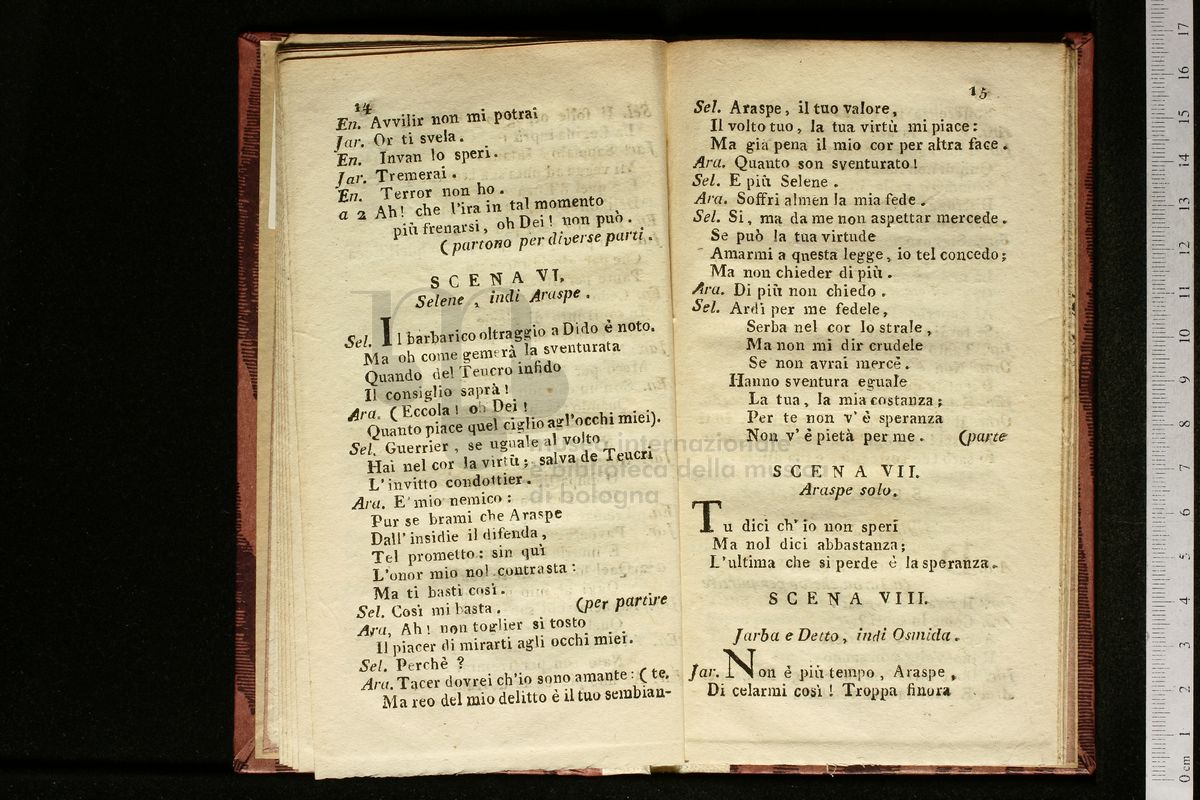 14
En. Avvilir non mi potrai
Jar. Or ti svela.
En. Invan lo speri.
Jar. Tremerai.
En. Terror non ho.
a 2 Ah! che l'ira in tal momento
più frenarsi, oh Dei! non può.
(partono per diverse parti.
SCENA VI.
Selene, indi Araspe.
Sel. Il barbarico oltraggio a Dido è noto.
Ma oh come gemerà la sventurata
Quando del Teucro infido
Il consiglio saprà!
Ara. (Eccola! oh Dei!
Quanto piace quel ciglio agl'occhi miei).
Sel. Guerrier, se uguale al volto
Hai nel cor la virtù; salva de Teucri
L'invitto condottier.
Ara. E' mio nemico:
Pur se brami che Araspe
Dall' insidie il difenda,
Tel prometto: sin quì
L'onor mio nol contrasta:
Ma ti basti così.
Sel. Così mi basta. (per partire
Ara, Ah! non toglier si tosto
Il piacer di mirarti agli occhi miei.
Sel. Perchè ?
Ara. Tacer dovrei ch'io sono amante: ( te.
Ma reo del mio delitto è il tuo sembian-
15
Sel. Araspe, il tuo valore,
Il volto tuo, la tua virtù mi piace:
Ma già pena il mio cor per altra face.
Ara. Quanto son sventurato!
Sel. E più Selene.
Ara. Soffri almen la mia fede.
Sel. Si, ma da me non aspettar mercede.
Se può la tua virtude
Amarmi a questa legge, io tel concedo;
Ma non chieder di più.
Ara. Di più non chiedo.
Sel. Ardi per me fedele,
Serba nel cor lo strale,
Ma non mi dir crudele
Se non avrai mercè.
Hanno sventura eguale
La tua, la mia costanza;
Per te non v' è speranza
Non v' è pietà per me. (parte
SCENA VII.
Araspe solo.
Tu dici ch' io non speri
Ma nol dici abbastanza;
L'ultima che si perde è la speranza.
SCENA VIII.
Jarba e Detto, indi Osmida.
Jar. Non è più tempo, Araspe,
Di celarmi così! Troppa finora
museo internazionale
e biblioteca della musica
di bologna
0 cm 1 2 3 4 5 6 7 8 9 10 11 12 13 14 15 16 17